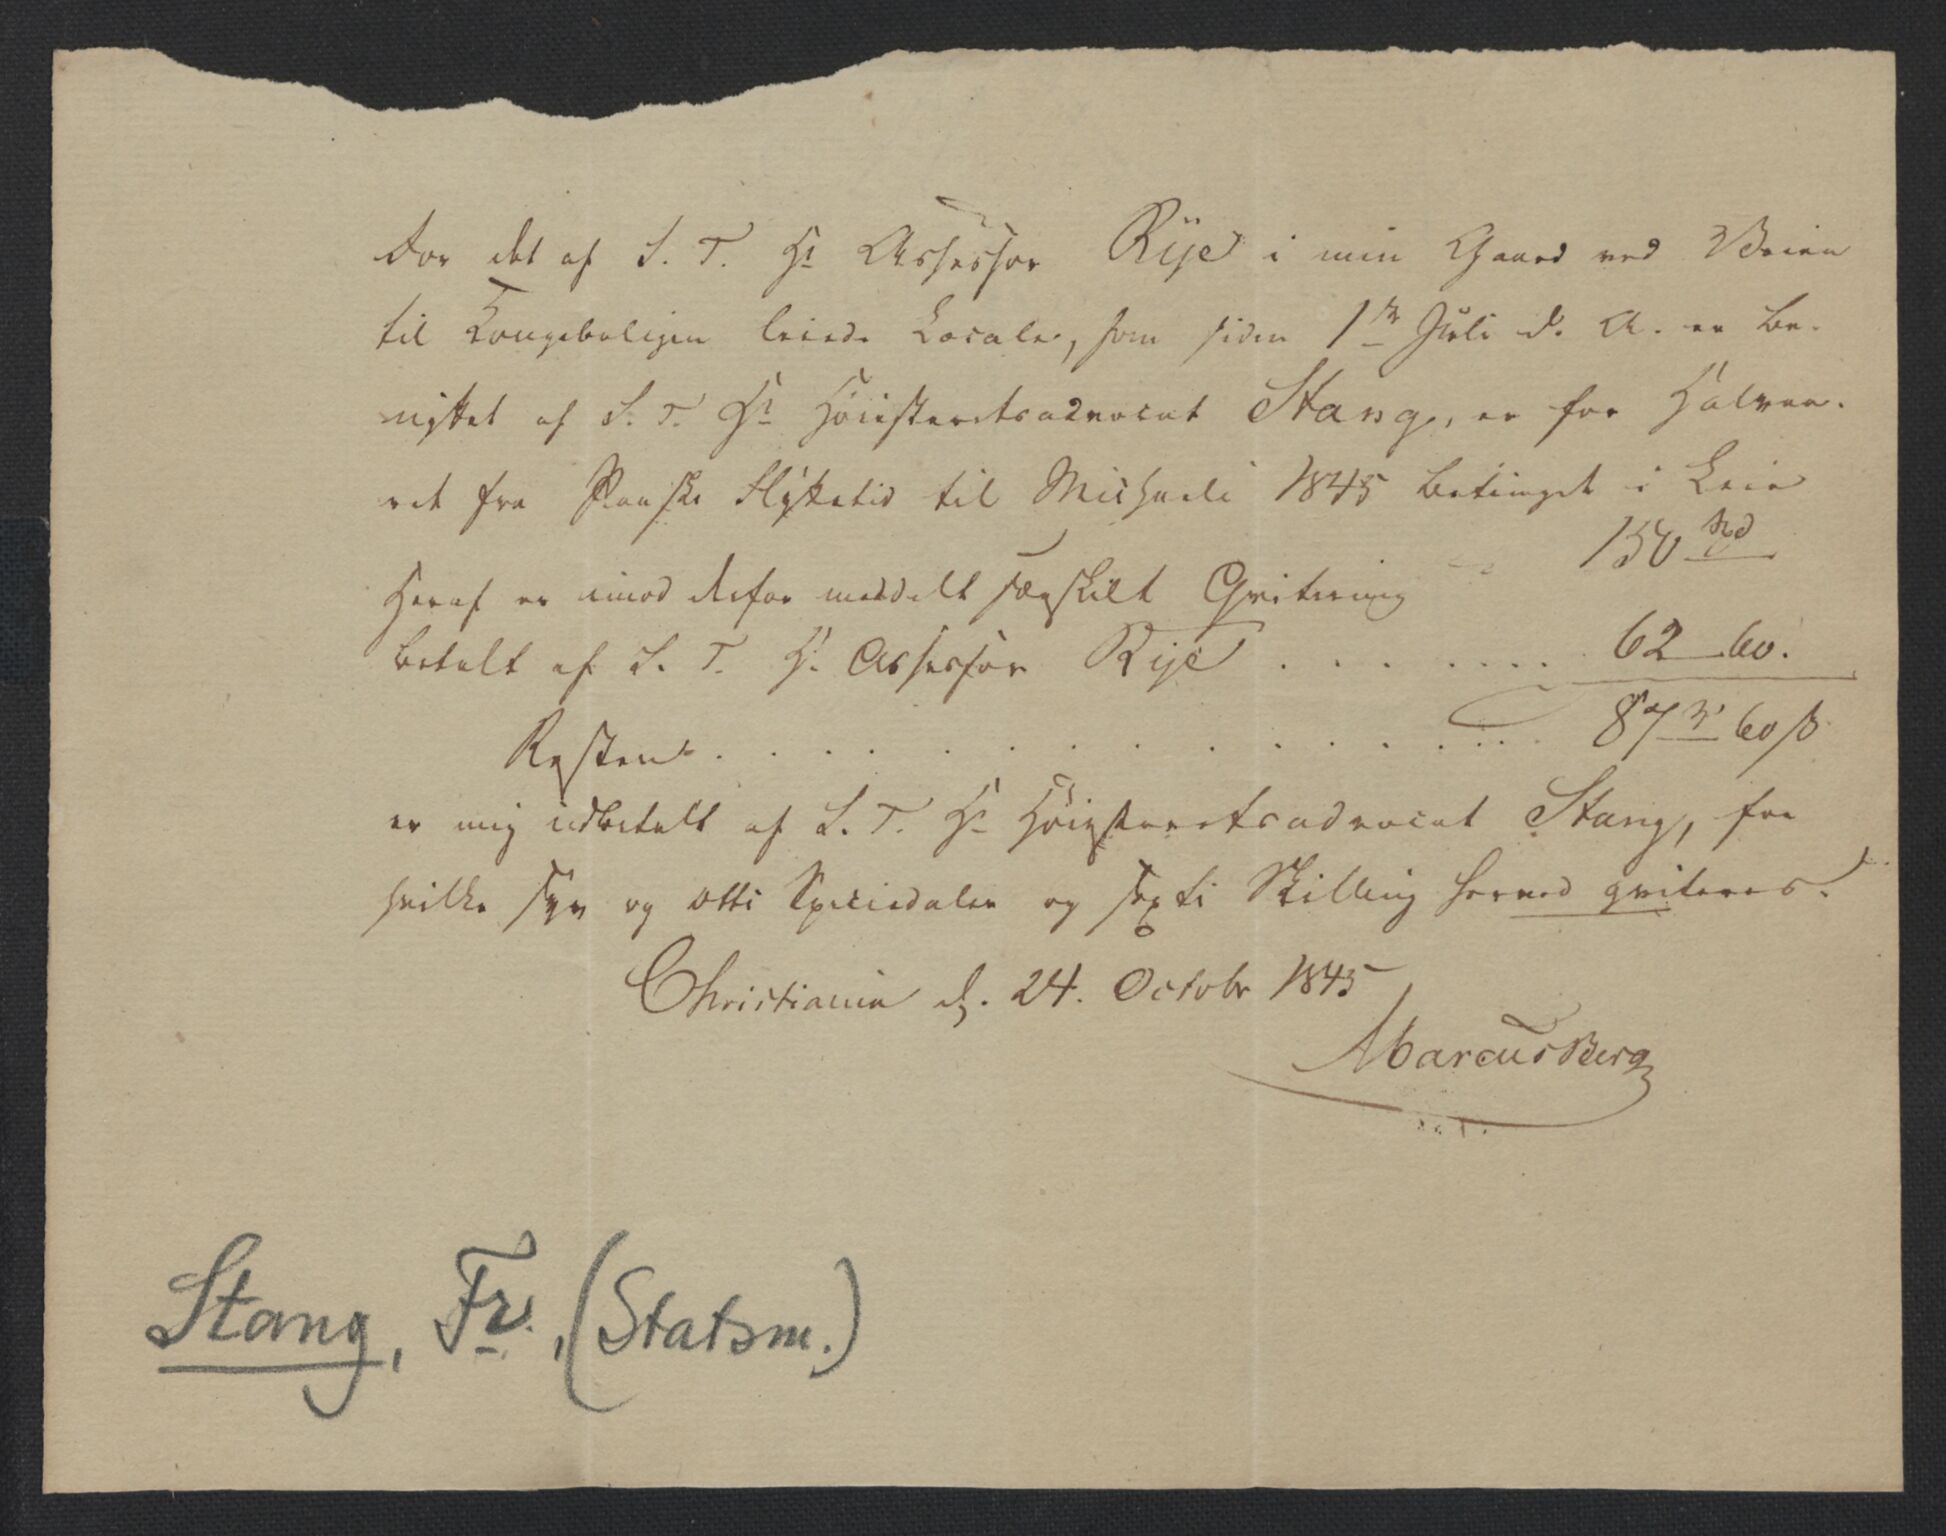 For det af S. T. Hr Assessor Rye i min Gaard ved Veien
til Kongeboligen leiede Locale, som siden 1ste Juli d. A. er be-
nyttet af S. T. Hr Høiesteretsadvocat Stang, er for Halvaa-
ret fra Paaske Flyttetid til Michaeli 1845 betinget i Leie
150 Spd
Heraf er imod derfor meddelt særskilt Qvitering
betalt af S. T. Hr Assessor Rye . . . . . . . 62 60.
Resten . . . . . . . . . . . . . . 87 60 ß
er mig udbetalt af S. T. Hr Høiesteretsadvocat Stang, for
hvilke syv og otti Speciedaler og sexti Skilling herved qviteres.
Christiania d. 24. Octobr 1845
Marcus Berg
Stang, Fr., (Statsm.)